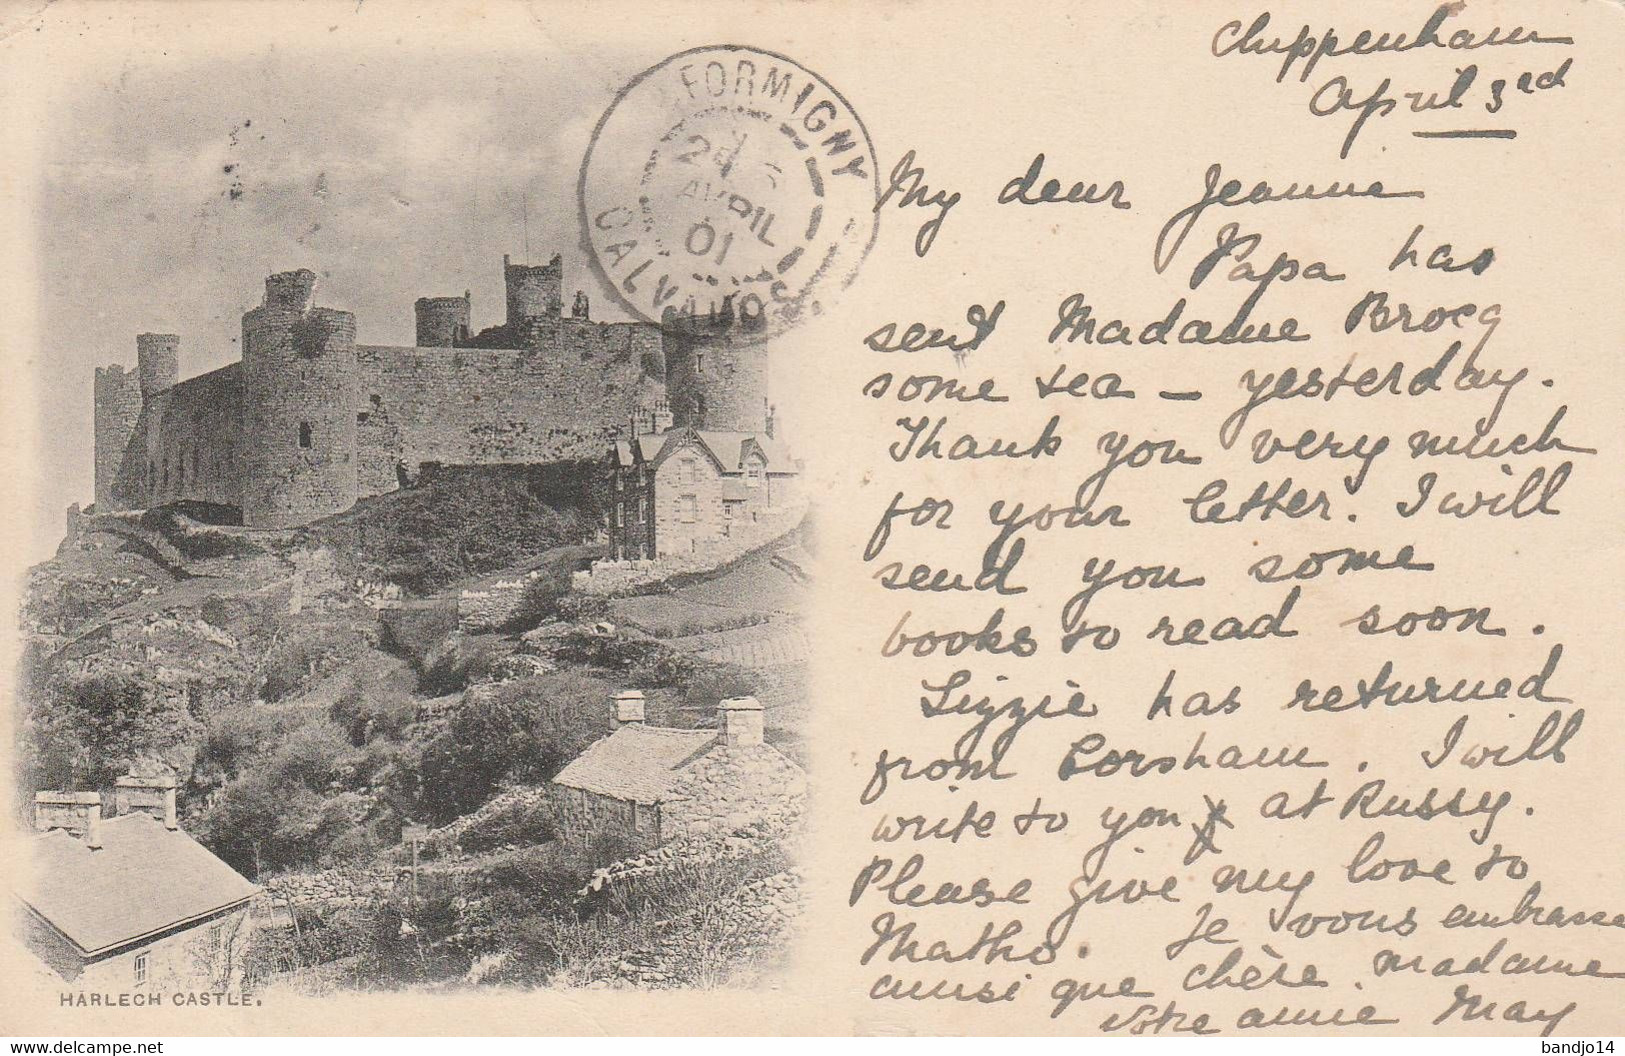 Chippenham
April 3rd
My dear Jeanne
Papa has
sent Madame Brocq
some tea – yesterday.
Thank you very much
for your letter. I will
send you some
books to read soon.
Lizzie has returned
from Corsham. I will
write to you at Russy.
Please give my love to
Matho. Je vous embrasse
ainsi que chère madame
Votre amie May
FORMIGNY
24
AVRIL
01
CALVADOS
HARLECH CASTLE.
www.delcampe.net
bandjo14